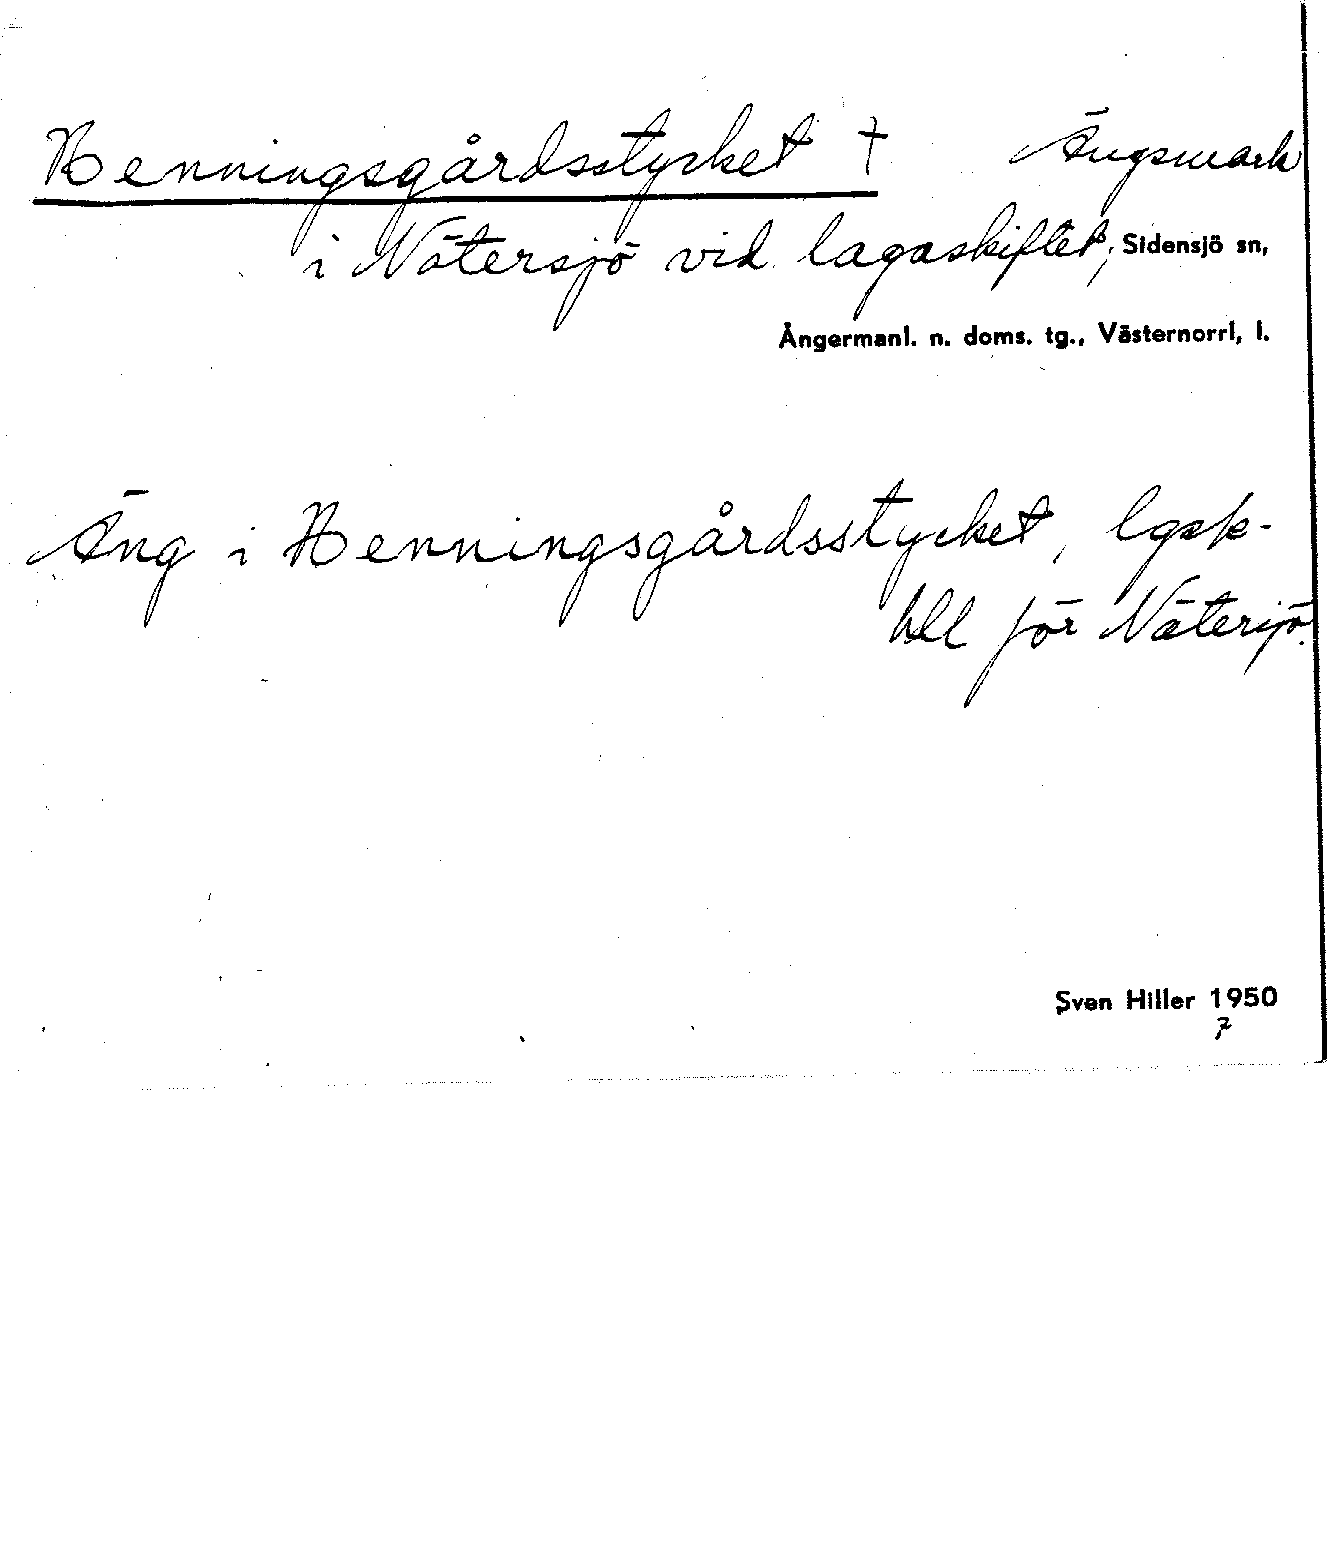 Henningsgårdsstycket † Ängsmark
i Nätersjö vid lagaskiftet, Sidensjö sn,
Ångermanl. n. doms. tg., Västernorrl, l.
Äng i Henningsgårdsstycket, lgsk-
hll för Nätersjö.
Sven Hiller 1950
7